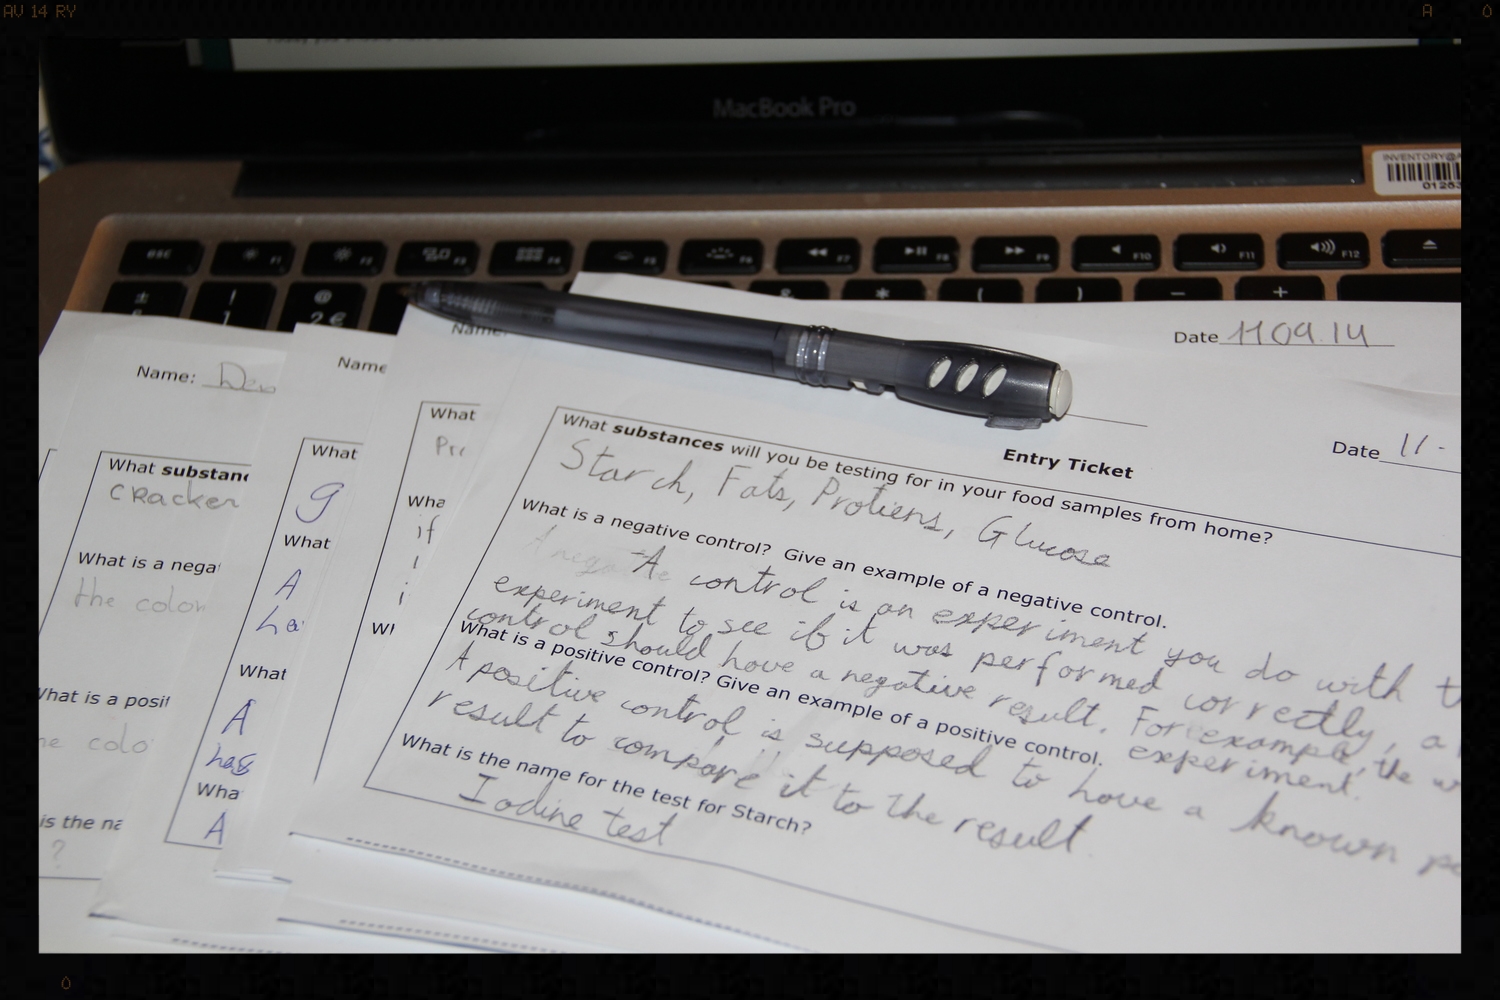 AV 14 RY
A 0
MacBook Pro
INVENTORY@
esc F1 F2 F3 F4 F5 F6 F7 F8 F9 F10 F11 F12
± ! @ & * ( ) − +
1 2 €
Date 11 09.14
Name:
Name
Name:
Date 11-
Entry Ticket
What substances will you be testing for in your food samples from home?
Starch, Fats, Protiens, Glucose
What is a negative control? Give an example of a negative control.
A control is an experiment you do with
experiment to see if it was performed correctly, a
control should have a negative result. For example, the
What is a positive control? Give an example of a positive control. experiment.
A positive control is supposed to have a known
result to compare it to the result
What is the name for the test for Starch?
Iodine test
What
if
What
g
What
A
What
A
has
A
What substan
cRacker
What is a nega
the color
What is a posit
colo
is the na
?
0